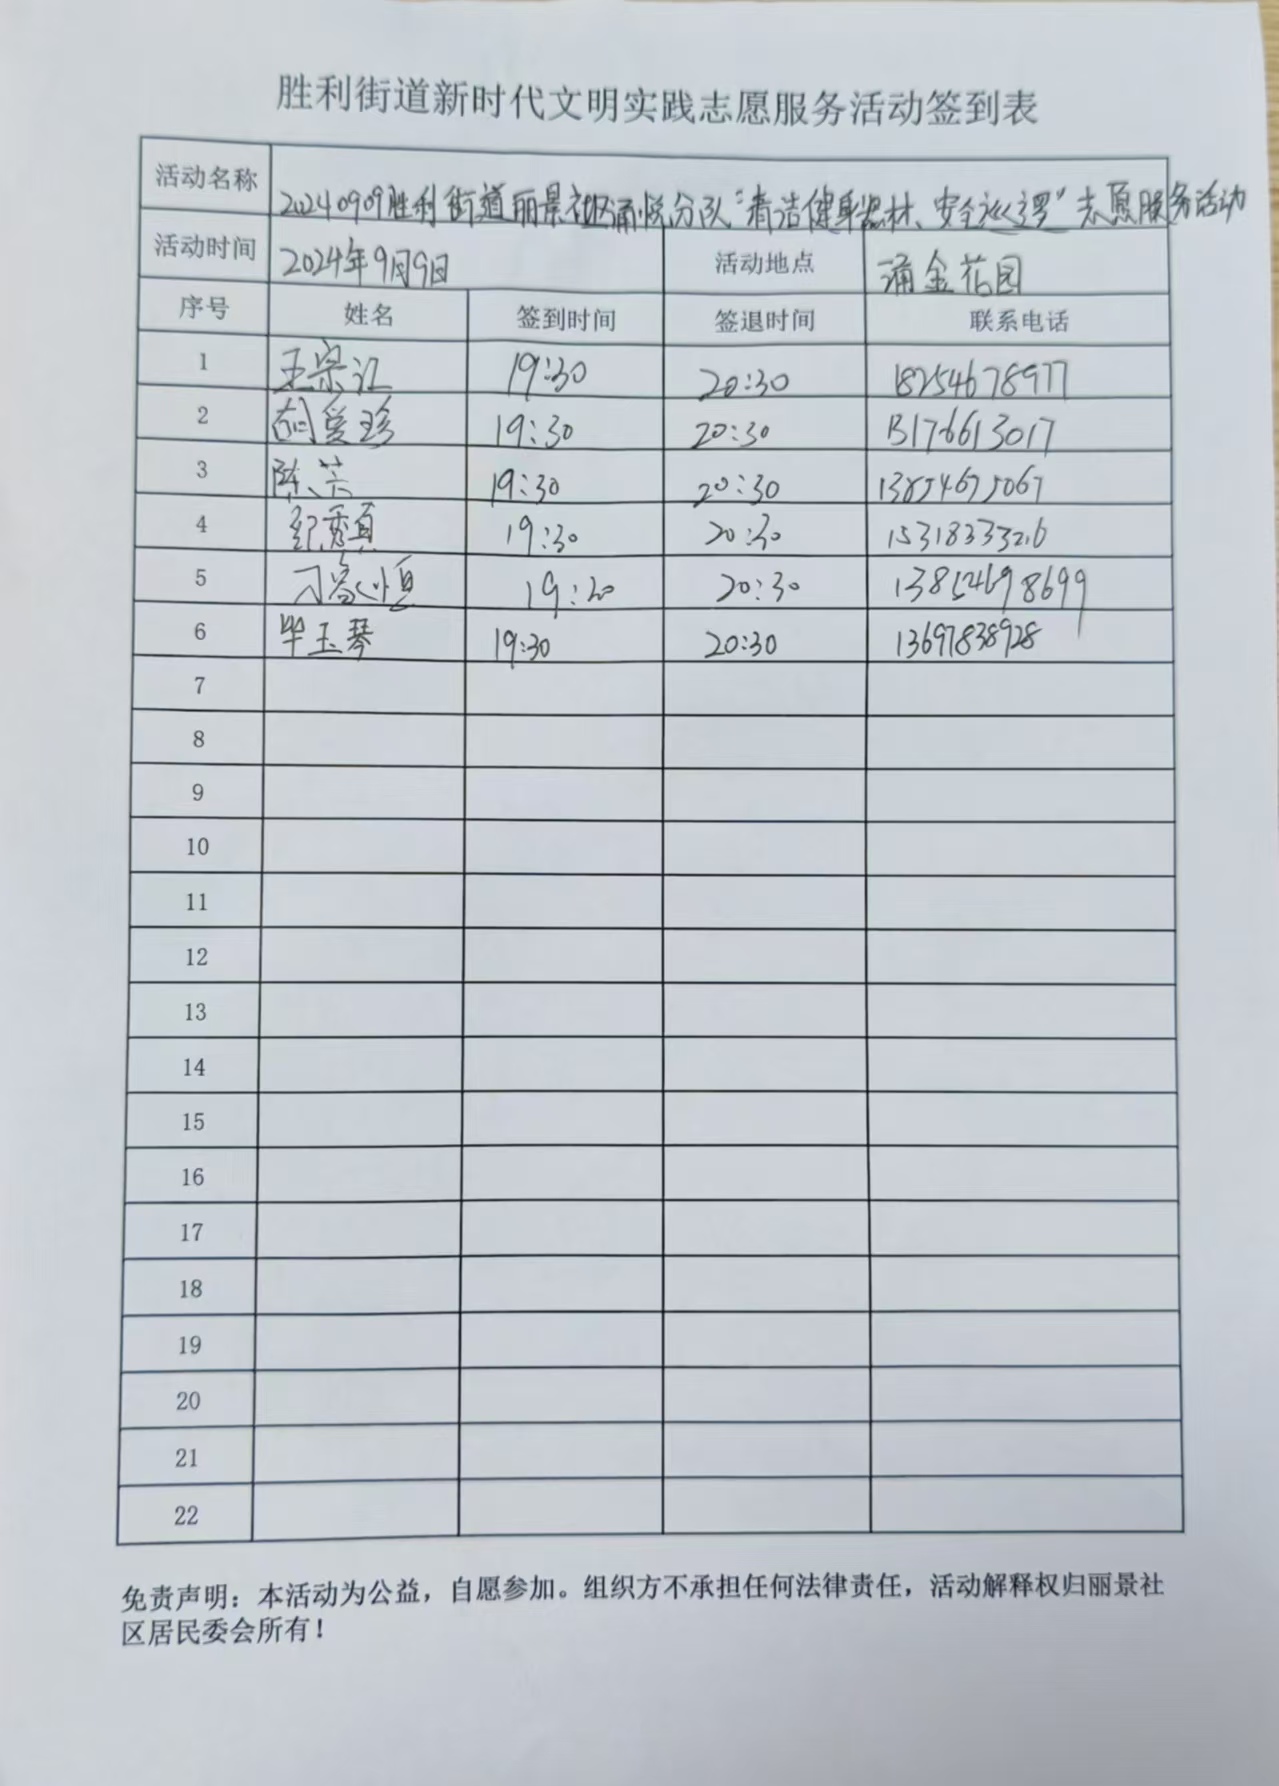 胜利街道新时代文明实践志愿服务活动签到表
活动名称 20240909胜利街道丽景社区涌悦分队“清洁健身器材、安全巡逻”志愿服务活动
活动时间 2024年9月9日 活动地点 涌金花园
序号 姓名 签到时间 签退时间 联系电话
1 王宗江 19:30 20:30 18254678977
2 爱珍 19:30 20:30 13176613017
3 陈芸 19:30 20:30 13854675067
4 纪秀贞 19:30 20:30 15318333216
5 19:30 20:30 13854698699
6 毕玉琴 19:30 20:30 13697838928
7
8
9
10
11
12
13
14
15
16
17
18
19
20
21
22
免责声明：本活动为公益，自愿参加。组织方不承担任何法律责任，活动解释权归丽景社
区居民委会所有！